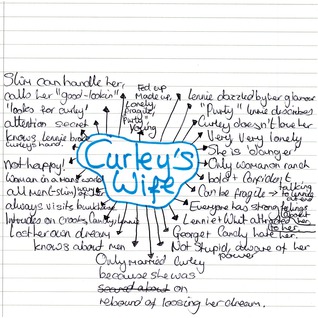 Slim can handle her,
calls her "good-lookin"
"looks for curley"
attention secret
knows Lennie broke
curley's hand.
not happy!
Woman in a mans world
all men (-slim)
always visits bunkhouse
Intrudes on Crooks, Candy, Lennie
Lost her own dream
knows about men
Fed up
Made up
Lonely
fragile
"Purty"
Young
Curley's
Wife
Lennie dazzled by her glamour
"Purty" lennie describes
Curley doesn't love her
Very, Very lonely
She is 'danger'
Only woman on ranch
bold + Confident
Can be fragile → talking
to lennie
Everyone has strong feelings
about
her
Lennie + Whit attracted to her
George + Candy hate her.
Not Stupid, aware of her
power
Only Married Curley
because she was
secred about on
rebound of loosing her dream.